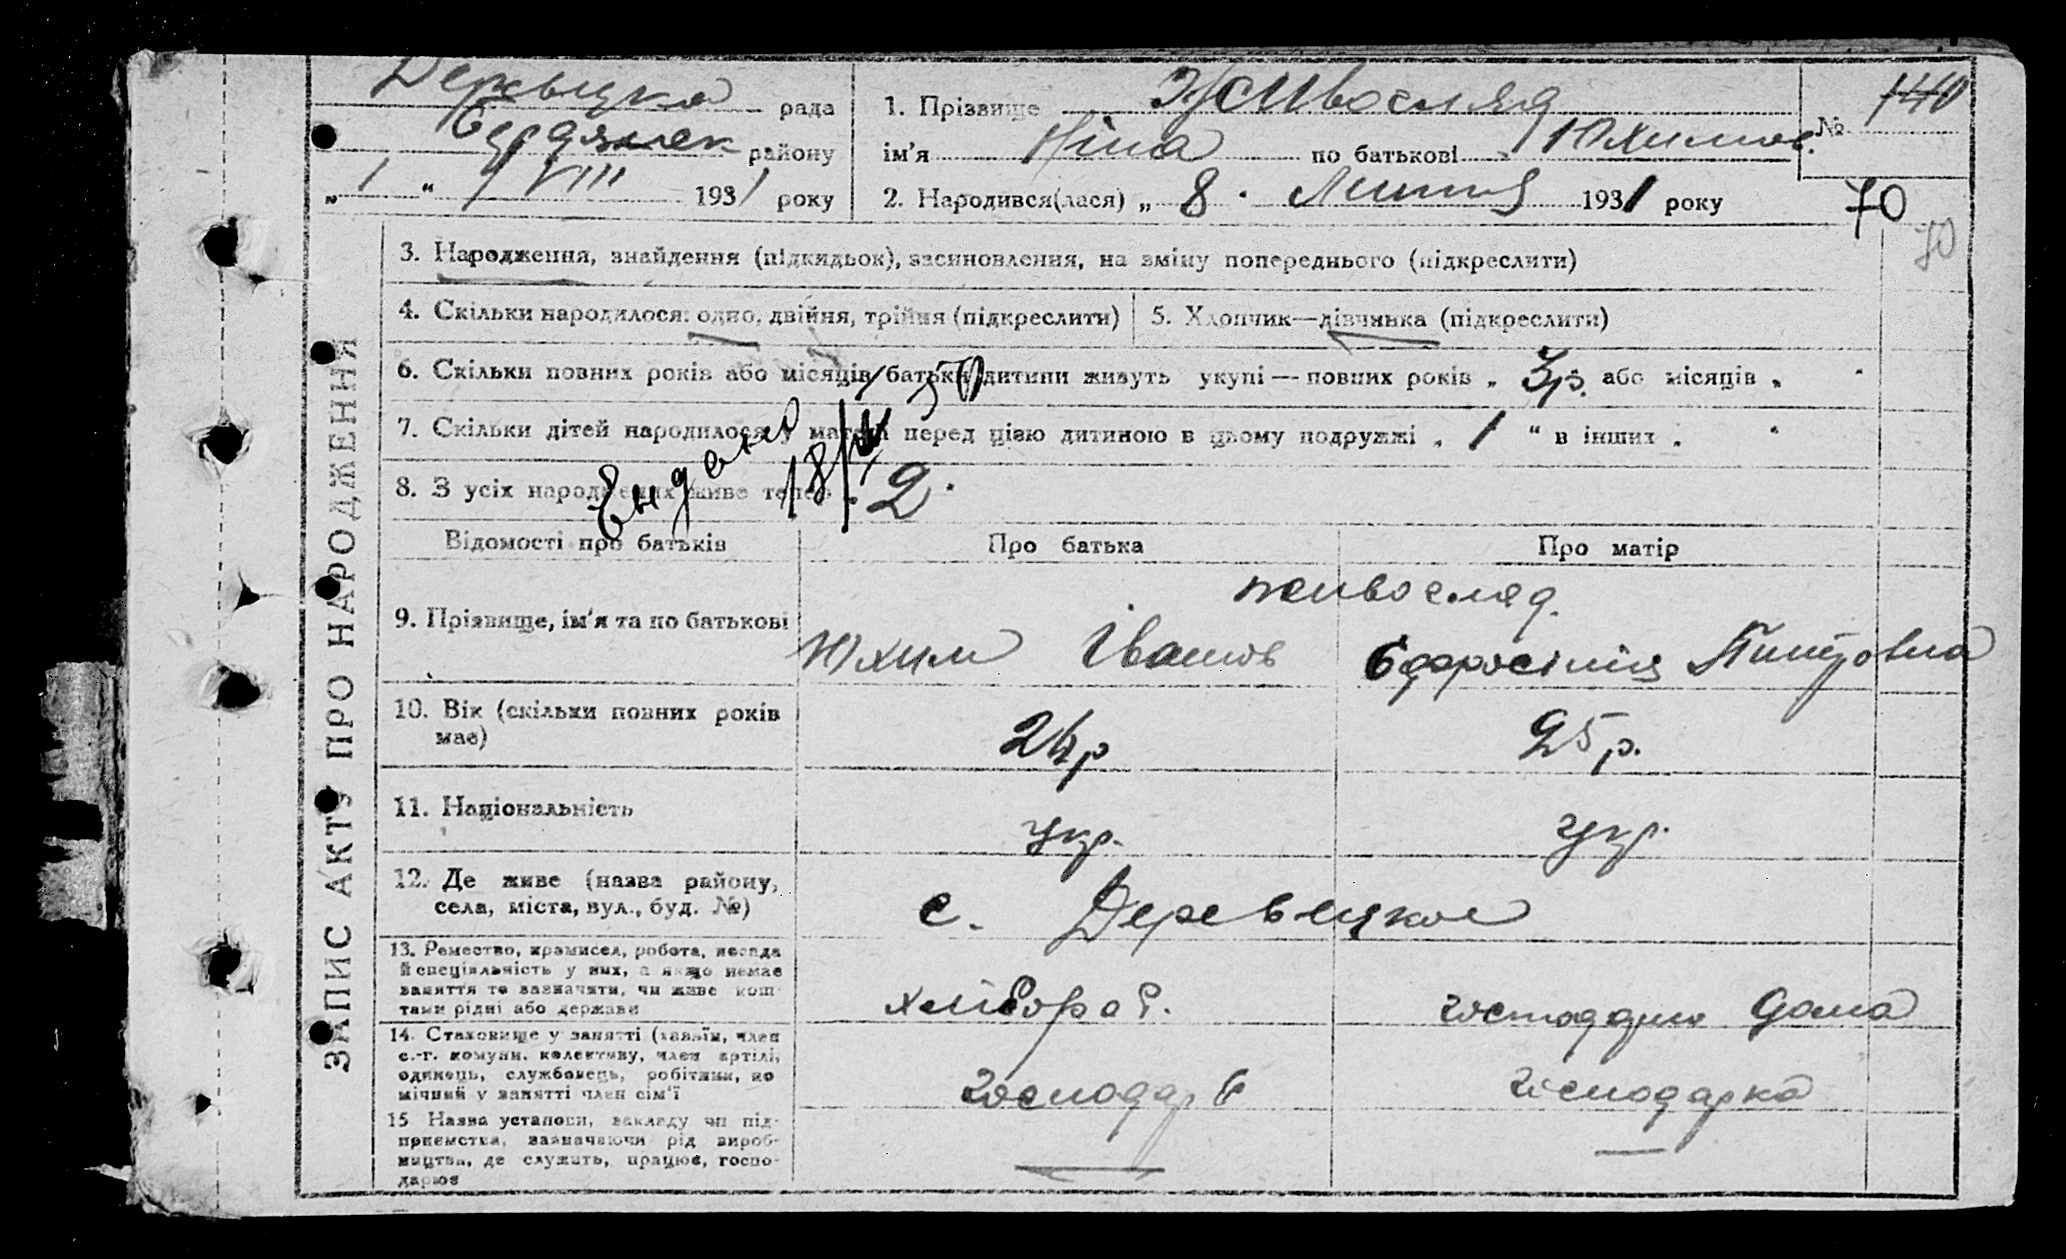 Деревецка рада
Бердянськ району
„ 1 “ VIII 1931 року
1. Прізвище Живосляд
ім'я Ніна по батькові Юхимов.
2. Народився(лася) „ 8 . Липня 1931 року
№ 140
70
70
ЗАПИС АКТУ ПРО НАРОДЖЕННЯ
3. Народження, знайдення (підкидьок), засиновлення, на зміну попереднього (підкреслити)
4. Скільки народилося: одно, двійня, трійня (підкреслити)
5. Хлопчик—дівчинка (підкреслити)
6. Скільки повних років або місяців батьки дитини живуть укупі — повних років „ 3р. або місяців „
7. Скільки дітей народилося у матери перед цією дитиною в цьому подружжі „ 1 “ в інших „ “
8. З усіх народжених живе тепер „ 2 .
Відомості про батьків
Про батька
Про матір
9. Прізвище, ім'я та по батькові
Живосляд.
Юхим Іванов
Єфросінія Питровна
10. Вік (скільки повних років має)
24р
25р.
11. Національність
Укр.
Укр.
12. Де живе (назва району, села, міста, вул., буд. №)
с. Деревецкое
13. Ремество, промисел, робота, посада
й спеціяльність у них, а якщо немає
заняття то зазначити, чи живе кош-
тами рідні або держави
хлібороб.
господдню дома
14. Становище у занятті (хазяїн, член
с.-г. комуни, колективу, член артілі,
одинець, службовець, робітник, по
мічний у занятті член сім'ї
господарь
господарка
15 Назва установи, закладу чи під-
приємства, зазначаючи рід вироб-
ництва, де служить, працює, госпо-
дарює
—
—